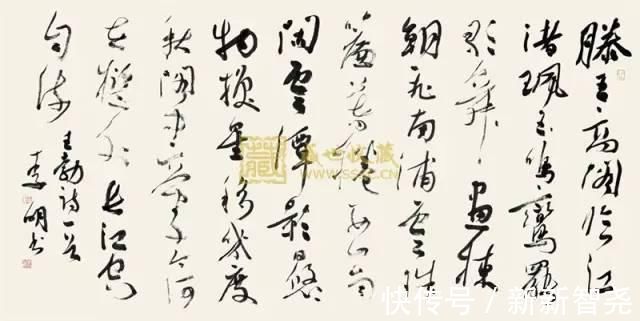 滕王高阁临江
渚珮玉鸣鸾罢
歌舞画栋
朝飞南浦云珠
簾暮捲西山雨
闲云潭影日悠
物换星移几度
秋阁中帝子今何
在槛外长江空
自流
王勃诗一首
李明书
盛世收藏
快传号 / 新新智尧